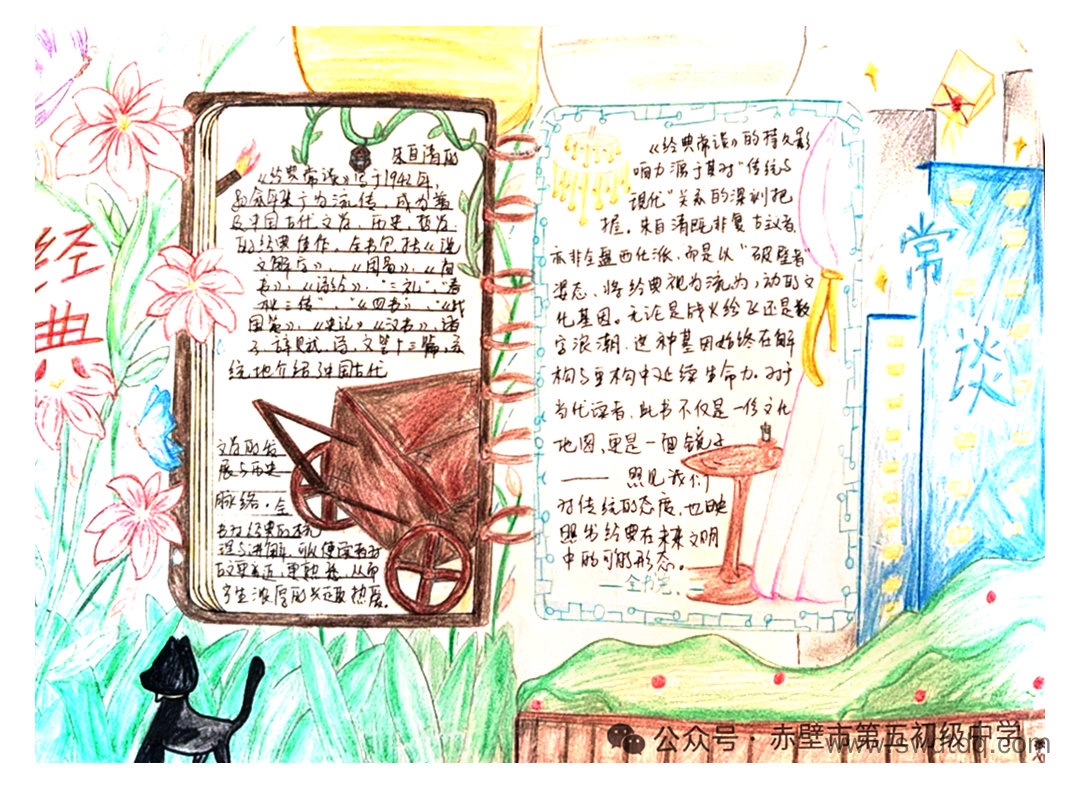 经典
常谈
朱自清的
《经典常谈》写于1942年,
及中国古代文学、历史、哲学
的经典佳作。全书包括《说
文解字》、《周易》、《尚
书》、《诗经》、“三礼”、“春
秋三传”、“《四书》、《战
国策》、《史记》《汉书》、诸
子、辞赋、诗、文等十三篇,系
统地介绍了中国古代
文学的发
展与历史
脉络。全
书对经典的梳
理与讲解,可以使读者对
《经典常谈》的持久影
响力源于其对“传统与
现代”关系的深刻把
握。朱自清既非复古议者,
亦非全盘西化派,而是以“破壁者”
姿态、将经典视为流为,动的文
化基因。无论是战火纷飞还是数
字浪潮,这种基因始终在解
构与重构中延续生命力。对于
当代读者,此书不仅是一份文化
地图,更是一面镜子
—— 照见我们
对传统的态度,也映
照出经典在未来文明
中的可能形态。
—全书完.
公众号·赤壁市第五初级中学